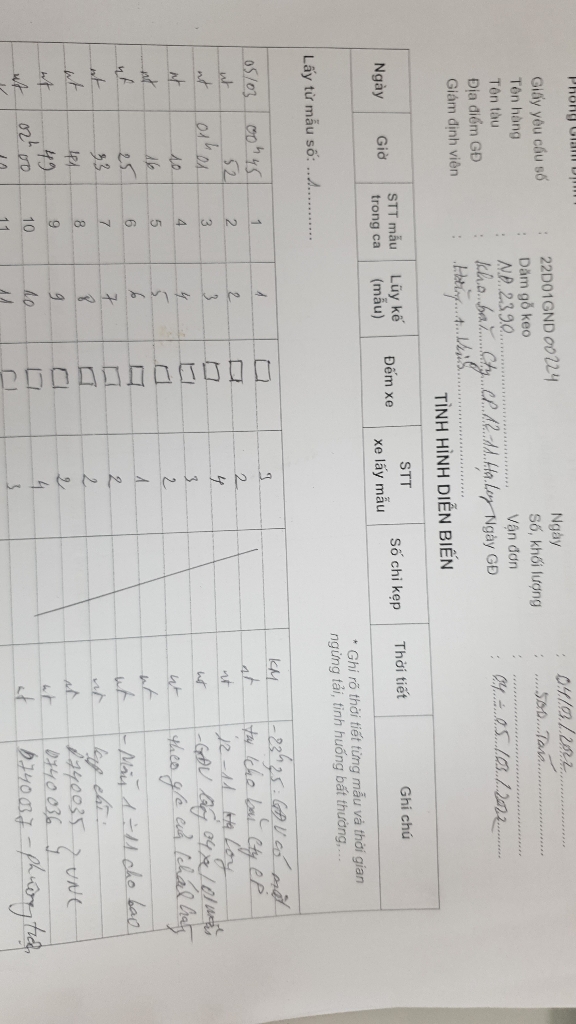 Phòng Giám Định
Giấy yêu cầu số : 22D01GND00224 Ngày : 04/03/2022
Tên hàng : Dăm gỗ keo Số, khối lượng : 500 Tấn
Tên tàu : NĐ.2390 Vận đơn :
Địa điểm GĐ : Kho bãi Cty CP.12-11 Hạ Long Ngày GĐ : 04-05/03/2022
Giám định viên :
TÌNH HÌNH DIỄN BIẾN
* Ghi rõ thời tiết từng mẫu và thời gian
ngừng tải, tình huống bất thường,...
Lấy từ mẫu số: ..1...........
Ngày Giờ STT mẫu trong ca Lũy kế (mẫu) Đếm xe STT xe lấy mẫu Số chì kẹp Thời tiết Ghi chú
05/03 00h45 1 1 3 KM -23h35. GĐV có mặt
nt 52 2 2 2 nt tại kho bãi Cty CP
nt 01h01 3 3 4 nt 12-11 Hạ Long
nt 10 4 4 3 nt
nt 16 5 5 2 nt theo y/c của khách hàng
nt 25 6 6 1 nt - Mẫu 1÷11 cho bao
nt 33 7 7 2 nt kẹp chì:
nt 41 8 8 2 nt 0740035 } VNC
nt 49 9 9 2 nt 0740036
nt 02h00 10 10 4 nt 0740037 - phương tiện
11 11 3